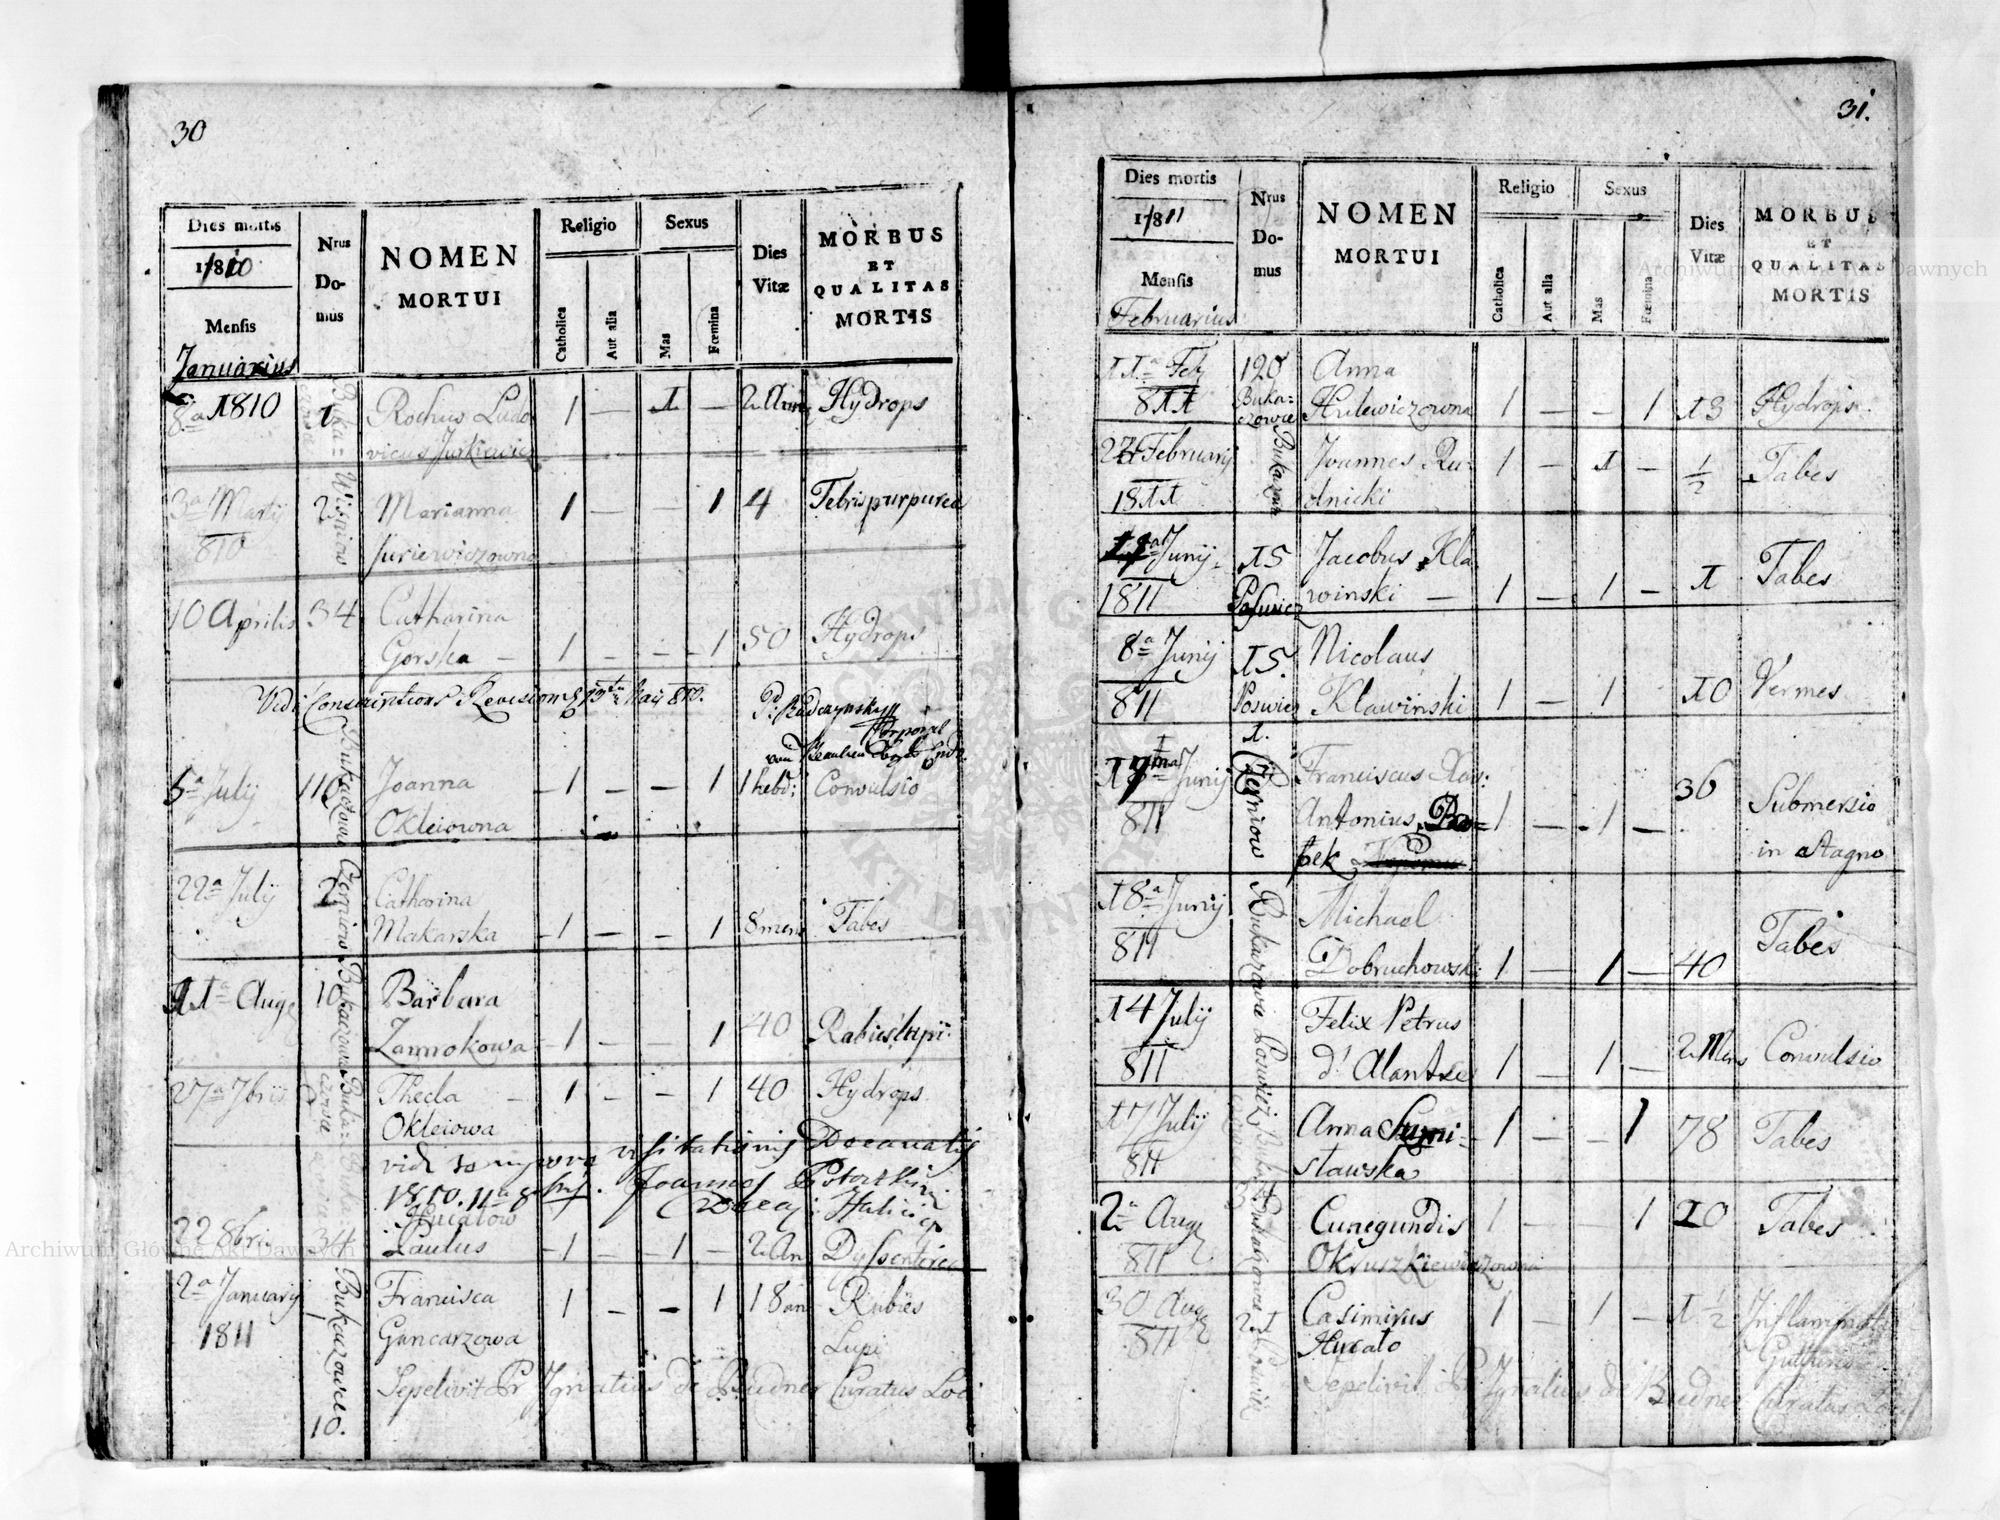 30
Dies mortis
1810
Mensis
Januarius
Nrus
Do-
mus
NOMEN
MORTUI
Religio
Catholica
Aut alia
Sexus
Mas
Fœmina
Dies
Vitæ
MORBUS
ET
QUALITAS
MORTIS
8a 1810 1 Rochus Ludo 1 — 1 — 2 Hydrops
vicus Jurkiewicz
3a Martij 2 Wisniow Marianna 1 — — 1 4 Febris purpurea
810 Juriewiczowna
10 Aprilis 34 Catharina
Gorska — 1 — — 1 50 Hydrops
Vidi Conscriptions Revision
5a July 110 Bukaczowce Joanna — 1 — — 1 1 hebd: Convulsio
Okleiowna
22a July 2 Czerniow Catharina
Makarska — 1 — — 1 8 mens Tabes
11a Aug 10 Bukaczowce Barbara
Zamokowa — 1 1 40 Rabies lupi
27a 7bris Thecla — 1 — — 1 40 Hydrops
Okleiowa
vidi tempore visitationis Decanalis
1810. 11a 8bris. Joannes
22 8bris 34 Paulus — 1 — 1 — 2 An Dyssenteria
2a January Bukaczowce Francisca 1 — — 1 18 an Rabies
1811 Gancarzowa Lupi
10. Sepelivit Pr Ignatius de Budner Curatus Loci
31.
Dies mortis
1811
Mensis
Februarius
Nrus
Do-
mus
NOMEN
MORTUI
Religio
Catholica
Aut alia
Sexus
Mas
Fœmina
Dies
Vitæ
MORBUS
ET
QUALITAS
MORTIS
11a Feb 120 Anna
811 Buka= Hulewiczowna 1 — — 1 13 Hydrops
czowce
Februarij Joannes Ru- 1 — 1 — 1/2 Tabes
1811 dnicki
Junij 15 Jacobus Kla
1811 winski — 1 — 1 — 1 Tabes
8a Junij 15. Nicolaus
811 Poswierz Klawinski 1 — 1 10 Vermes
1.
Junij Czerniow Franciscus Xav: 36 Submersio
811 Antonius 1 — 1 — in Stagno
bek
18a Junij Michael
811 Dobruchowski 1 — 1 — 40 Tabes
14 Julij Felix Petrus
811 d'Alantse 1 — 1 — 2 Mens Convulsio
17 Julij Anna 1 — — 1 78 Tabes
811 stawska
2a Aug 34 Cunegundis 1 — — 1 10 Tabes
811 Okruszkiewiczowna
30 Aug 21 Casimirus 1 — 1 — 1 1/2 Inflammatio
811 Hucato Gutturis
Sepelivit Pr: Ignatius de Budner Curatus Loci
Archiwum Główne Akt Dawnych
Archiwum Główne Akt Dawnych
ARCHIWUM GŁÓWNE AKT DAWNYCH